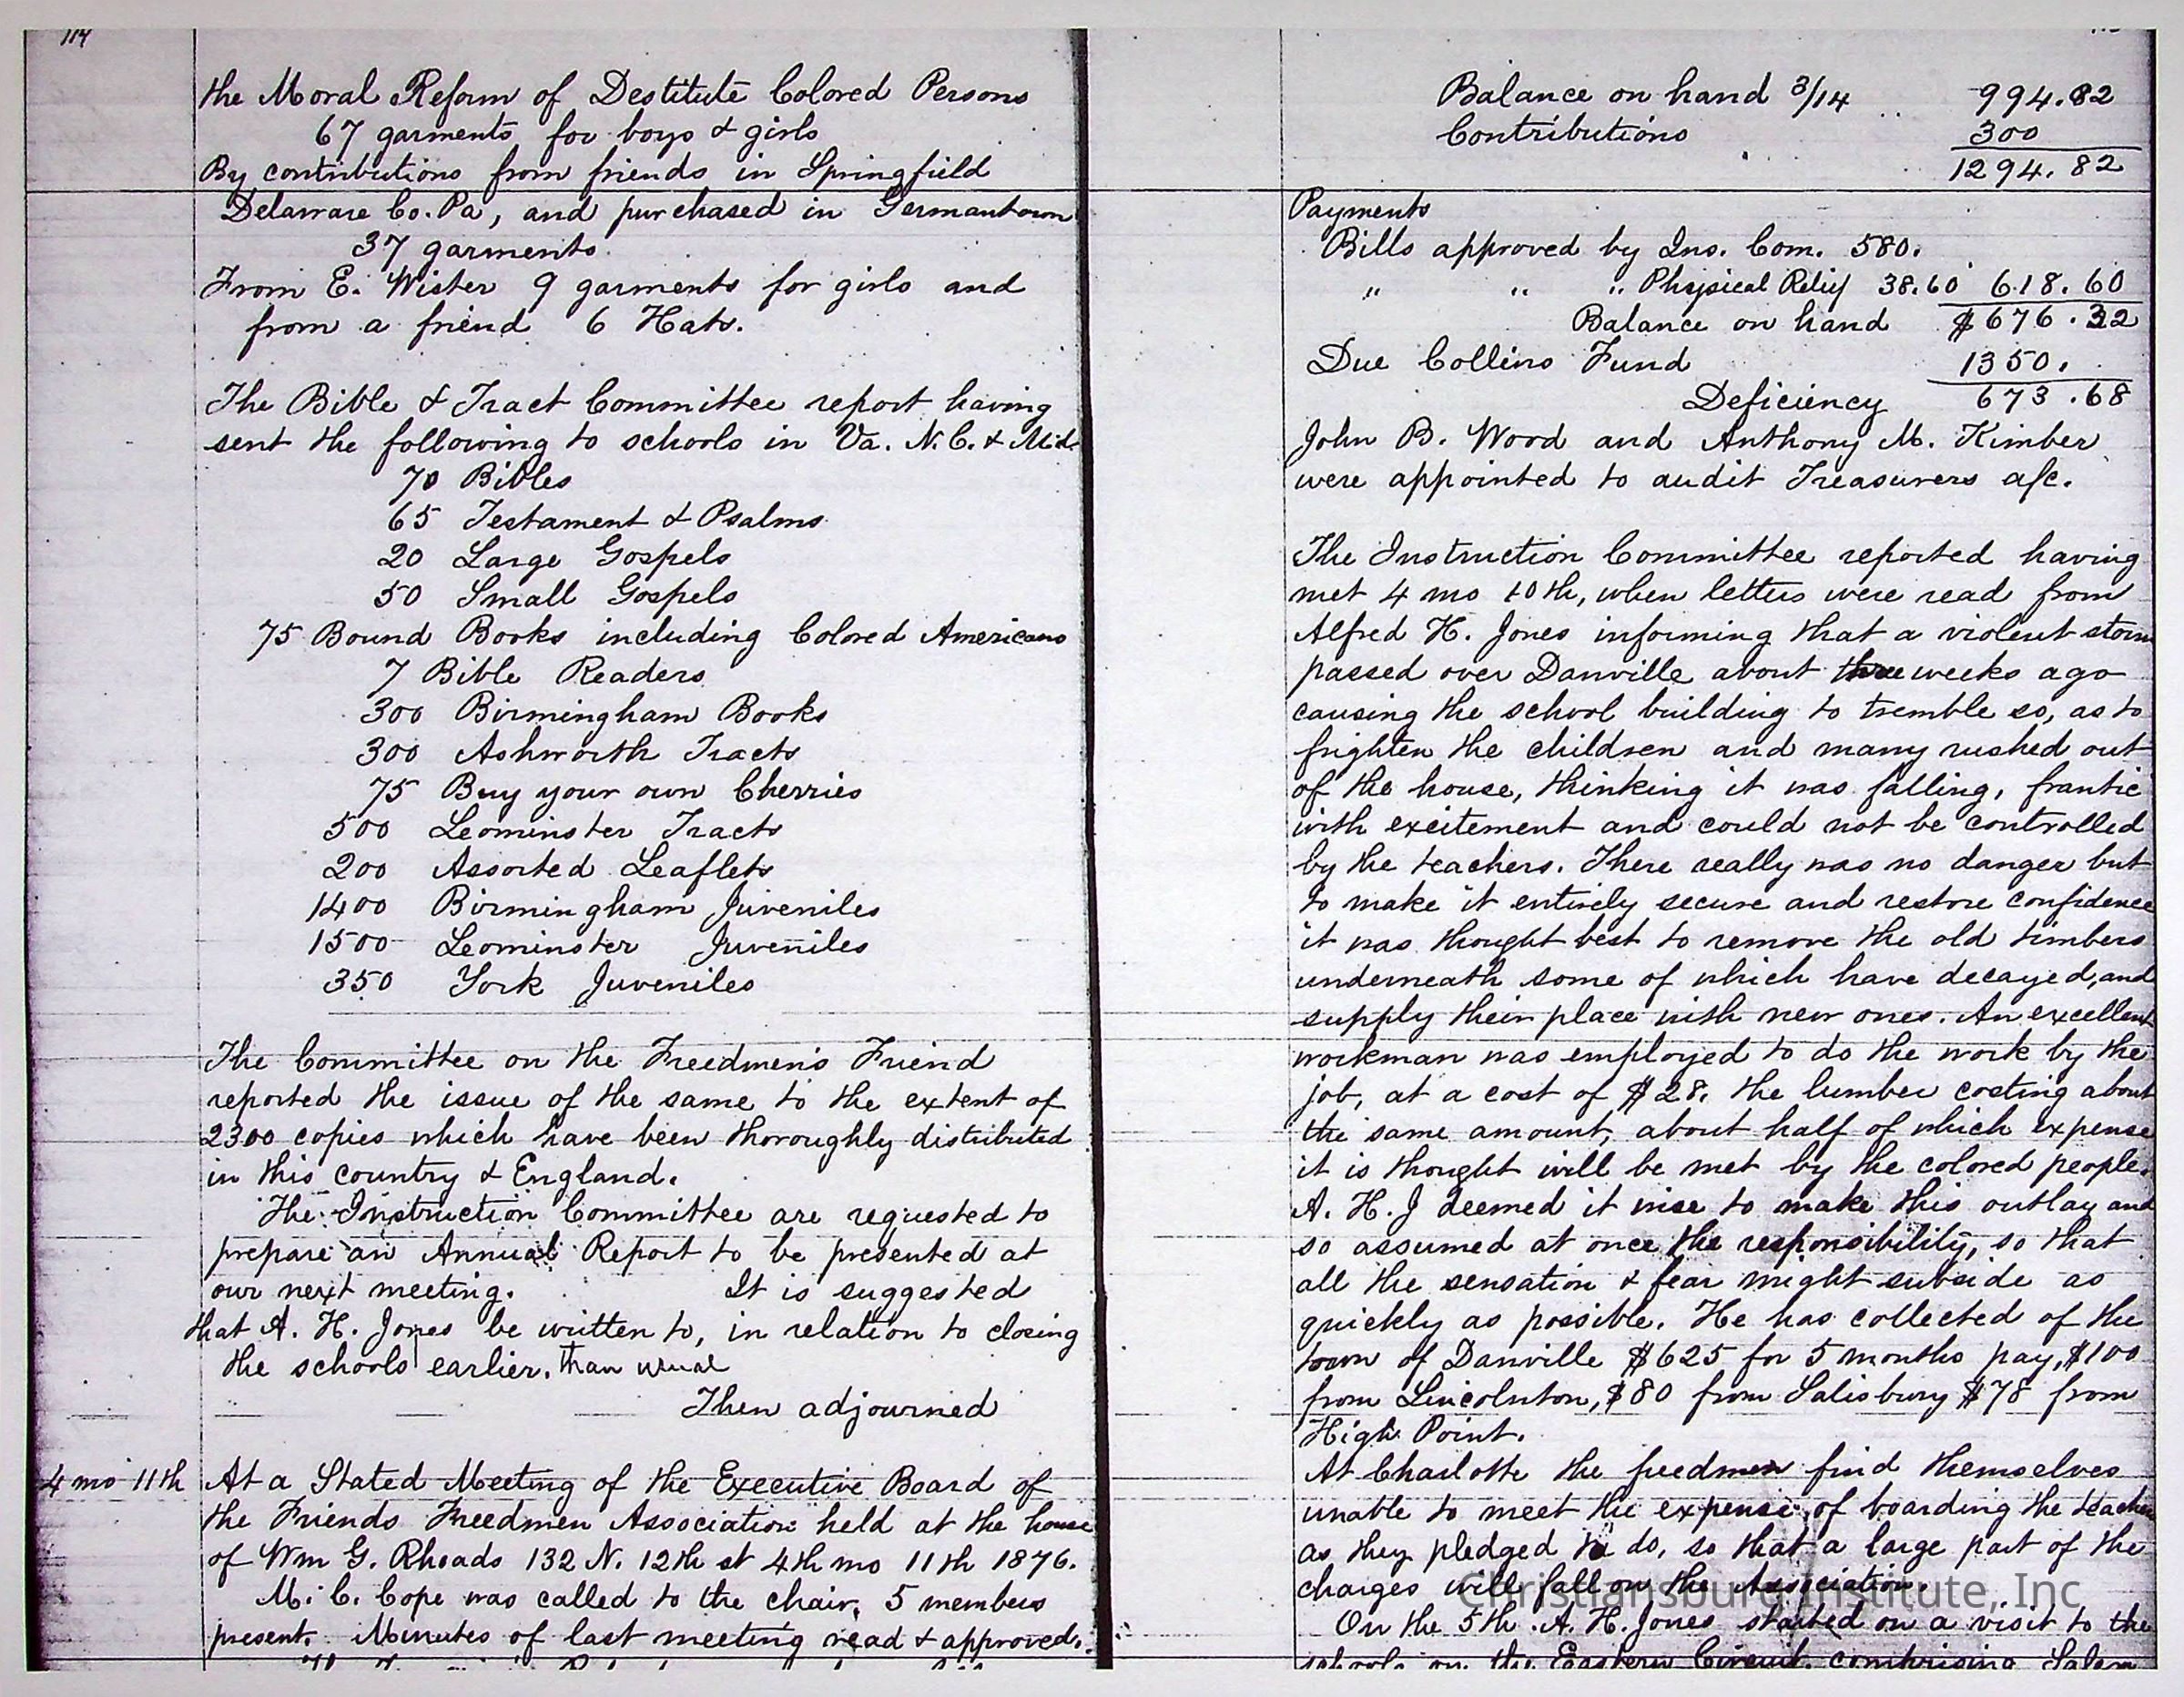 114
the Moral Reform of Destitute Colored Persons
67 garments for boys & girls
By contributions from friends in Springfield
Delaware Co. Pa, and purchased in Germantown
37 garments
From E. Wister 9 garments for girls and
from a friend 6 Hats.
The Bible & Tract Committee report having
sent the following to schools in Va. N.C. & Md.
70 Bibles
65 Testament & Psalms
20 Large Gospels
50 Small Gospels
75 Bound Books including Colored Americans
7 Bible Readers
300 Birmingham Books
300 Ashworth Tracts
75 Buy your own Cherries
500 Leominster Tracts
200 Assorted Leaflets
1400 Birmingham Juveniles
1500 Leominster Juveniles
350 York Juveniles
The Committee on the Freedmen's Friend
reported the issue of the same to the extent of
2300 copies which have been thoroughly distributed
in this country & England.
The Instruction Committee are requested to
prepare an Annual Report to be presented at
our next meeting. It is suggested
that A. H. Jones be written to, in relation to closing
the schools earlier. than usual
Then adjourned
4 mo 11th At a Stated Meeting of the Executive Board of
the Friends Freedmen Association held at the house
of Wm G. Rhoads 132 N. 12th st 4th mo 11th 1876.
M. C. Cope was called to the chair, 5 members
present. Minutes of last meeting read & approved.
Balance on hand 3/14 .. 994.82
Contributions 300
1294.82
Payments
Bills approved by Ins. Com. 580.
" " " Physical Relief 38.60 618.60
Balance on hand $676.32
Due Collins Fund 1350.
Deficiency 673.68
John B. Wood and Anthony M. Kimber
were appointed to audit Treasurers a/c.
The Instruction Committee reported having
met 4 mo 10th, when letters were read from
Alfred H. Jones informing that a violent storm
passed over Danville about three weeks ago
causing the school building to tremble so, as to
frighten the children and many rushed out
of the house, thinking it was falling, frantic
with excitement and could not be controlled
by the teachers. There really was no danger but
to make it entirely secure and restore confidence
it was thought best to remove the old timbers
underneath some of which have decayed, and
supply their place with new ones. An excellent
workman was employed to do the work by the
job, at a cost of $28. the lumber costing about
the same amount, about half of which expense
it is thought will be met by the colored people.
A. H. J deemed it wise to make this outlay and
so assumed at once the responsibility, so that
all the sensation & fear might subside as
quickly as possible. He has collected of the
town of Danville $625 for 5 months pay, $100
from Lincolnton, $80 from Salisbury $78 from
High Point.
At Charlotte the freedmen find themselves
unable to meet the expense of boarding the teacher
as they pledged to do, so that a large part of the
charges will fall on the Association.
Christiansburg Institute, Inc
On the 5th. A. H. Jones started on a visit to the
schools on the Eastern Circuit comprising Salem